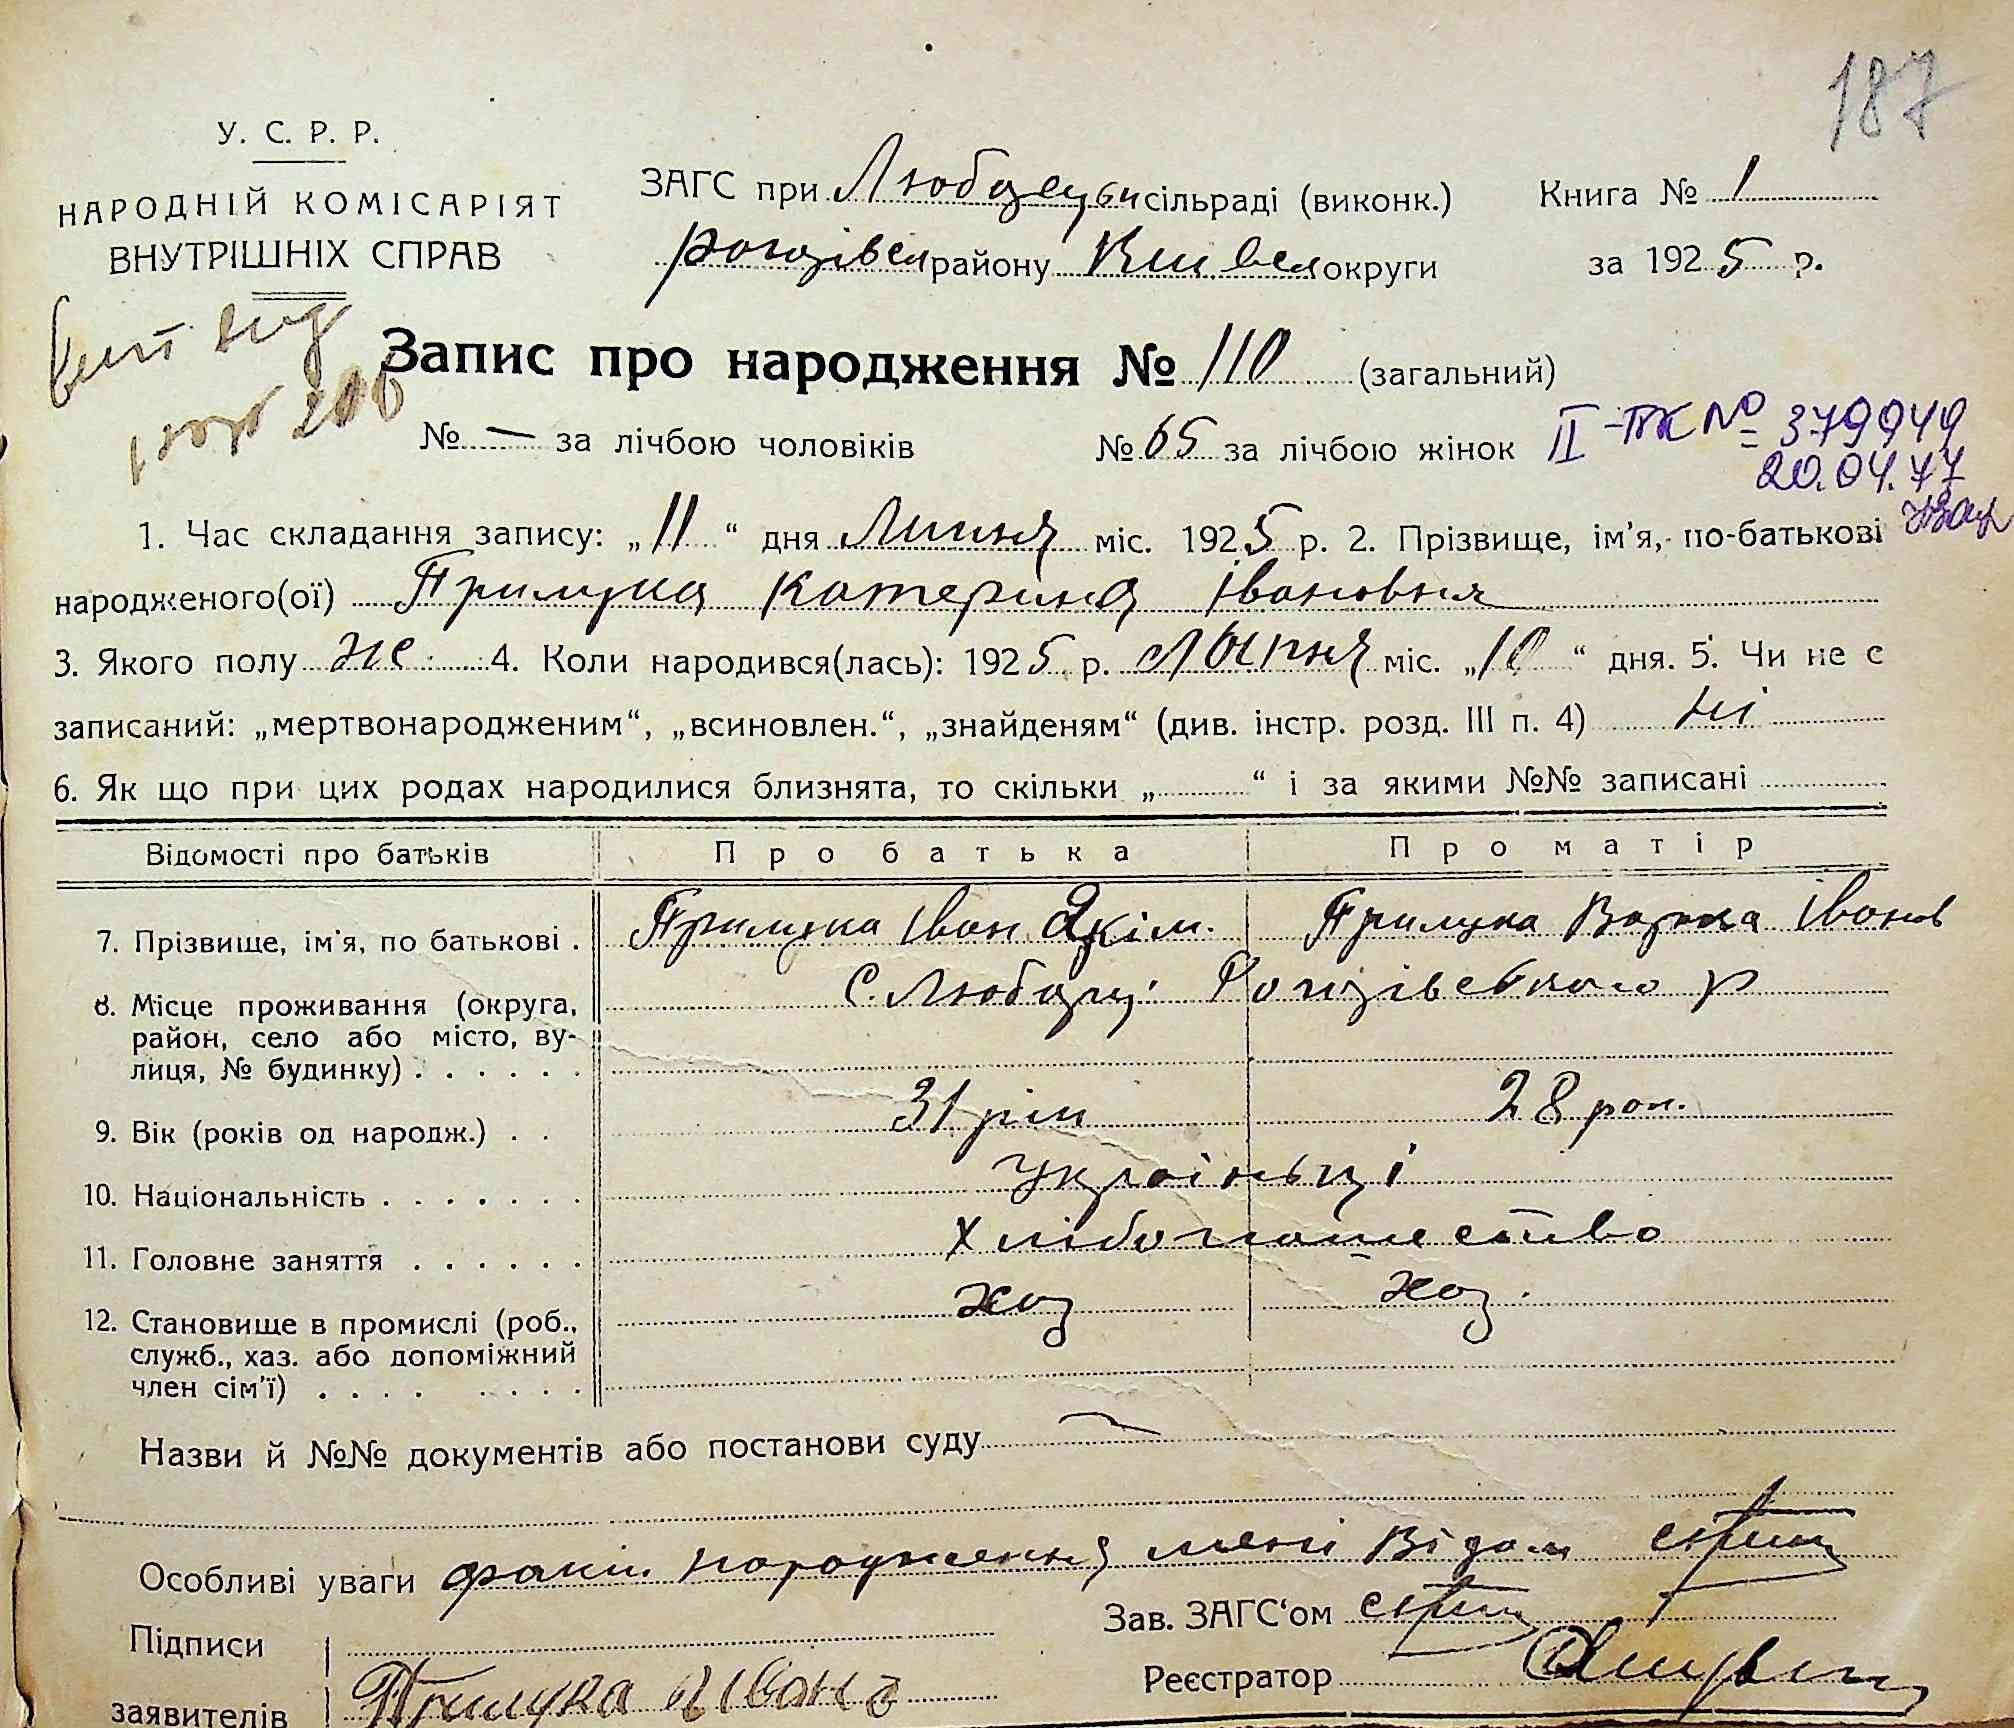 187
У. С. Р. Р.
НАРОДНІЙ КОМІСАРІЯТ
ВНУТРІШНІХ СПРАВ
ЗАГС при Любарец сільраді (виконк.)
Рогозівсл району Київсл округи
Книга № 1
за 1925 р.
Запис про народження № 110 (загальний)
№ — за лічбою чоловіків № 65 за лічбою жінок
II-ТЖ № 379949
20.04.77
1. Час складання запису: „11“ дня Липня міс. 1925 р. 2. Прізвище, ім'я, по-батькові
народженого(ої) Прилука Катерина Івановня
3. Якого полу же 4. Коли народився(лась): 1925 р. Лыпня міс. „10“ дня. 5. Чи не є
записаний: „мертвонародженим“, „всиновлен.“, „знайденям“ (див. інстр. розд. III п. 4) ні
6. Як що при цих родах народилися близнята, то скільки „ “ і за якими №№ записані
Відомості про батьків Про батька Про матір
7. Прізвище, ім'я, по батькові . Прилука Іван Якім. Прилука Варка Іванов
8. Місце проживання (округа,
район, село або місто, ву-
лиця, № будинку) . . . . . . с. Любарці Рогозівського р
9. Вік (років од народж.) . . 31 рік 28 рок.
10. Національність . . . . . . . Українці
11. Головне заняття . . . . . . Хлібопашество
12. Становище в промислі (роб.,
служб., хаз. або допоміжний
член сім'ї) . . . . . . . . хоз хоз.
Назви й №№ документів або постанови суду —
Особливі уваги факт народження мені відом
Зав. ЗАГС'ом
Підписи
заявителів Прилука Ивань
Реєстратор